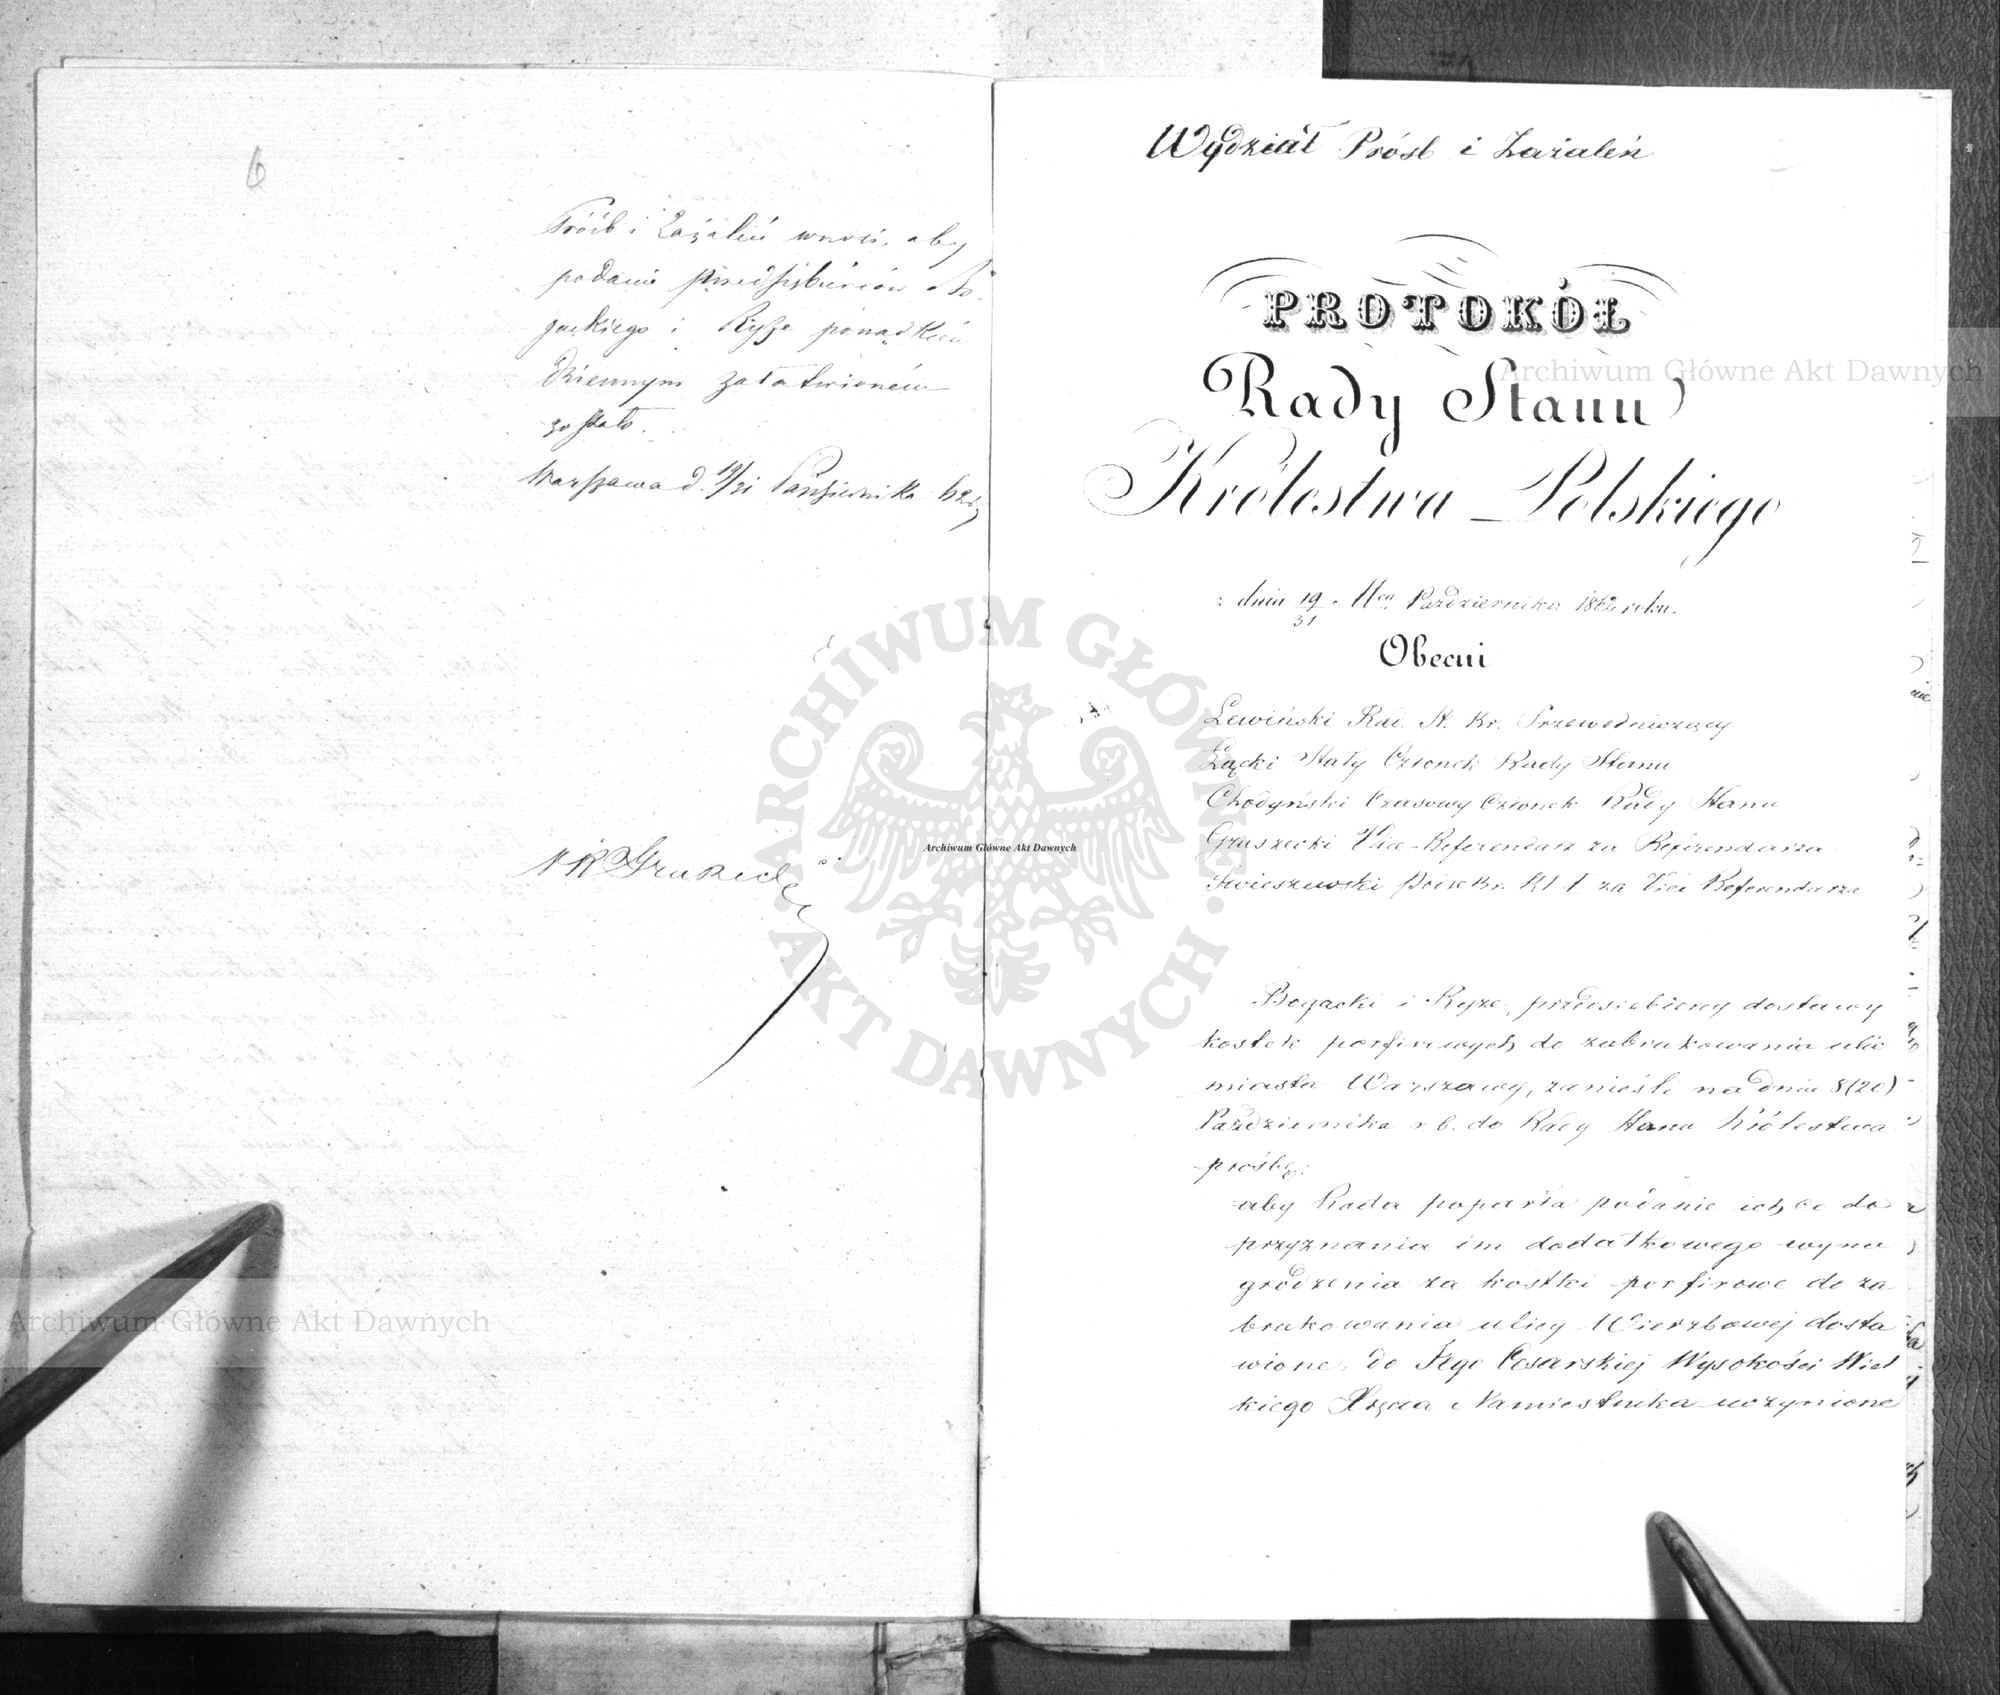 6
Próśb i Zażaleń wnosi, aby
podanie przedsiębierców Bo-
gackiego i Ryże porządkiem
dziennym załatwionem
zostało.
Warszawa d. 19/31 Października 62 r.
Wydział Próśb i Zażaleń
PROTOKÓŁ
Rady Stanu
Królestwa Polskiego
z dnia 19/31 Mca Października 1862 roku.
Obecni
Lewiński Rad. St. Kr. Przewodniczący
Łącki Stały Członek Rady Stanu
Chodyński Czasowy Członek Rady Stanu
Gruszecki Vice-Referendarz za Referendarza
za Vice Referendarza
Bogacki i Ryże, przedsiębiorcy dostawy
kostek porfirowych do zabrukowania ulic
miasta Warszawy, zanieśli na dniu 8(20)
Października r. b. do Rady Stanu Królestwa
prośbę:
aby Rada poparła podanie ich co do
przyznania im dodatkowego wyna
grodzenia za kostki porfirowe do za
brukowania ulicy Wierzbowej dosta
wione, do Jego Cesarskiej Wysokości Wiel
kiego Xięcia Namiestnika uczynione
Archiwum Główne Akt Dawnych
Archiwum Główne Akt Dawnych
Archiwum Główne Akt Dawnych
ARCHIWUM GŁÓWNE AKT DAWNYCH